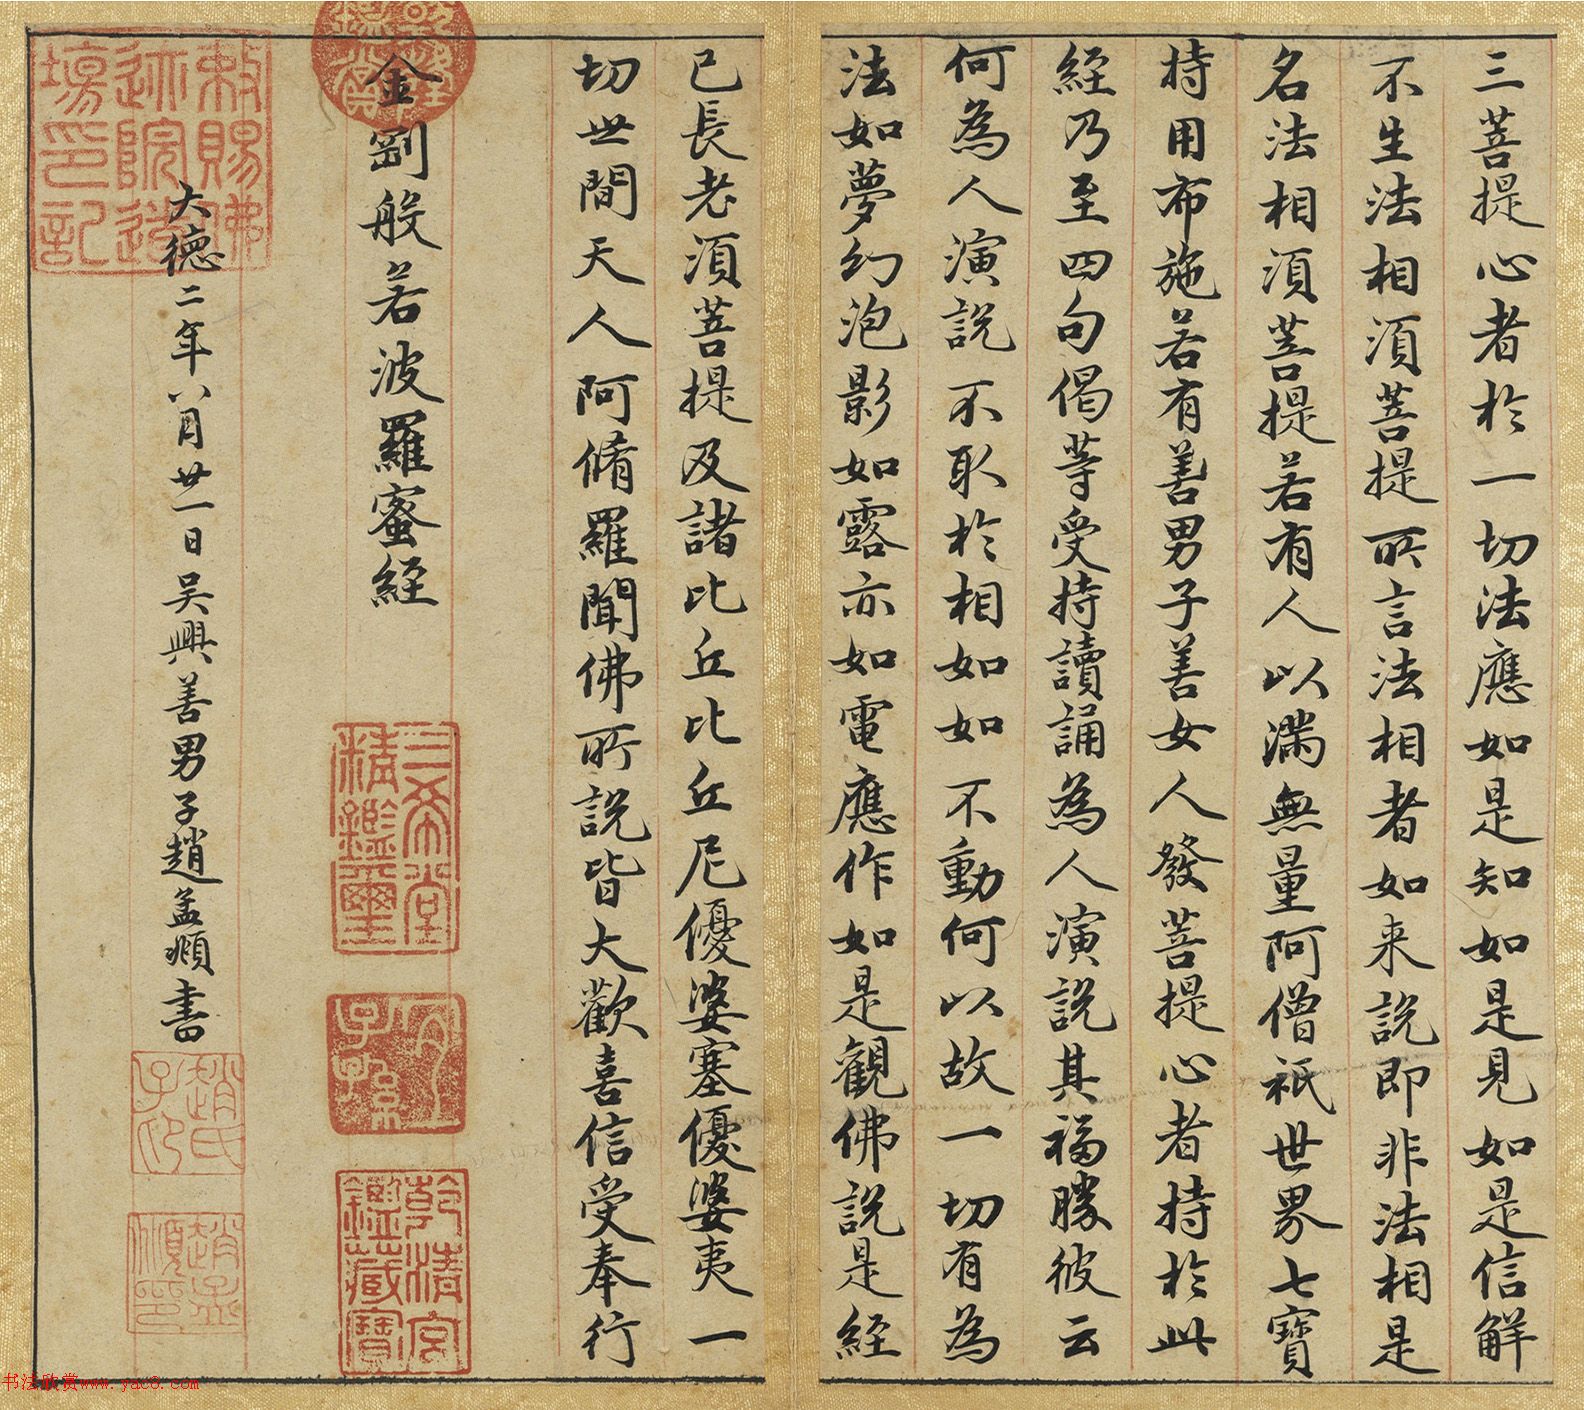 三菩提心者於一切法應如是知如是見如是信解
不生法相須菩提所言法相者如来說即非法相是
名法相須菩提若有人以滿無量阿僧祇世界七寶
持用布施若有善男子善女人發菩提心者持於此
經乃至四句偈等受持讀誦為人演說其福勝彼云
何為人演說不取於相如如不動何以故一切有為
法如夢幻泡影如露亦如電應作如是觀佛說是經
已長老須菩提及諸比丘比丘尼優婆塞優婆夷一
切世間天人阿脩羅聞佛所說皆大歡喜信受奉行
金剛般若波羅蜜經
三希堂
精鑑璽
宜子孫
乾清宮
鑑藏寶
大德二年八月廿一日吴興善男子趙孟頫書
趙氏
子印
趙孟
頫印
敕賜佛
迹院道
場印記
书法欣赏www.yac8.com